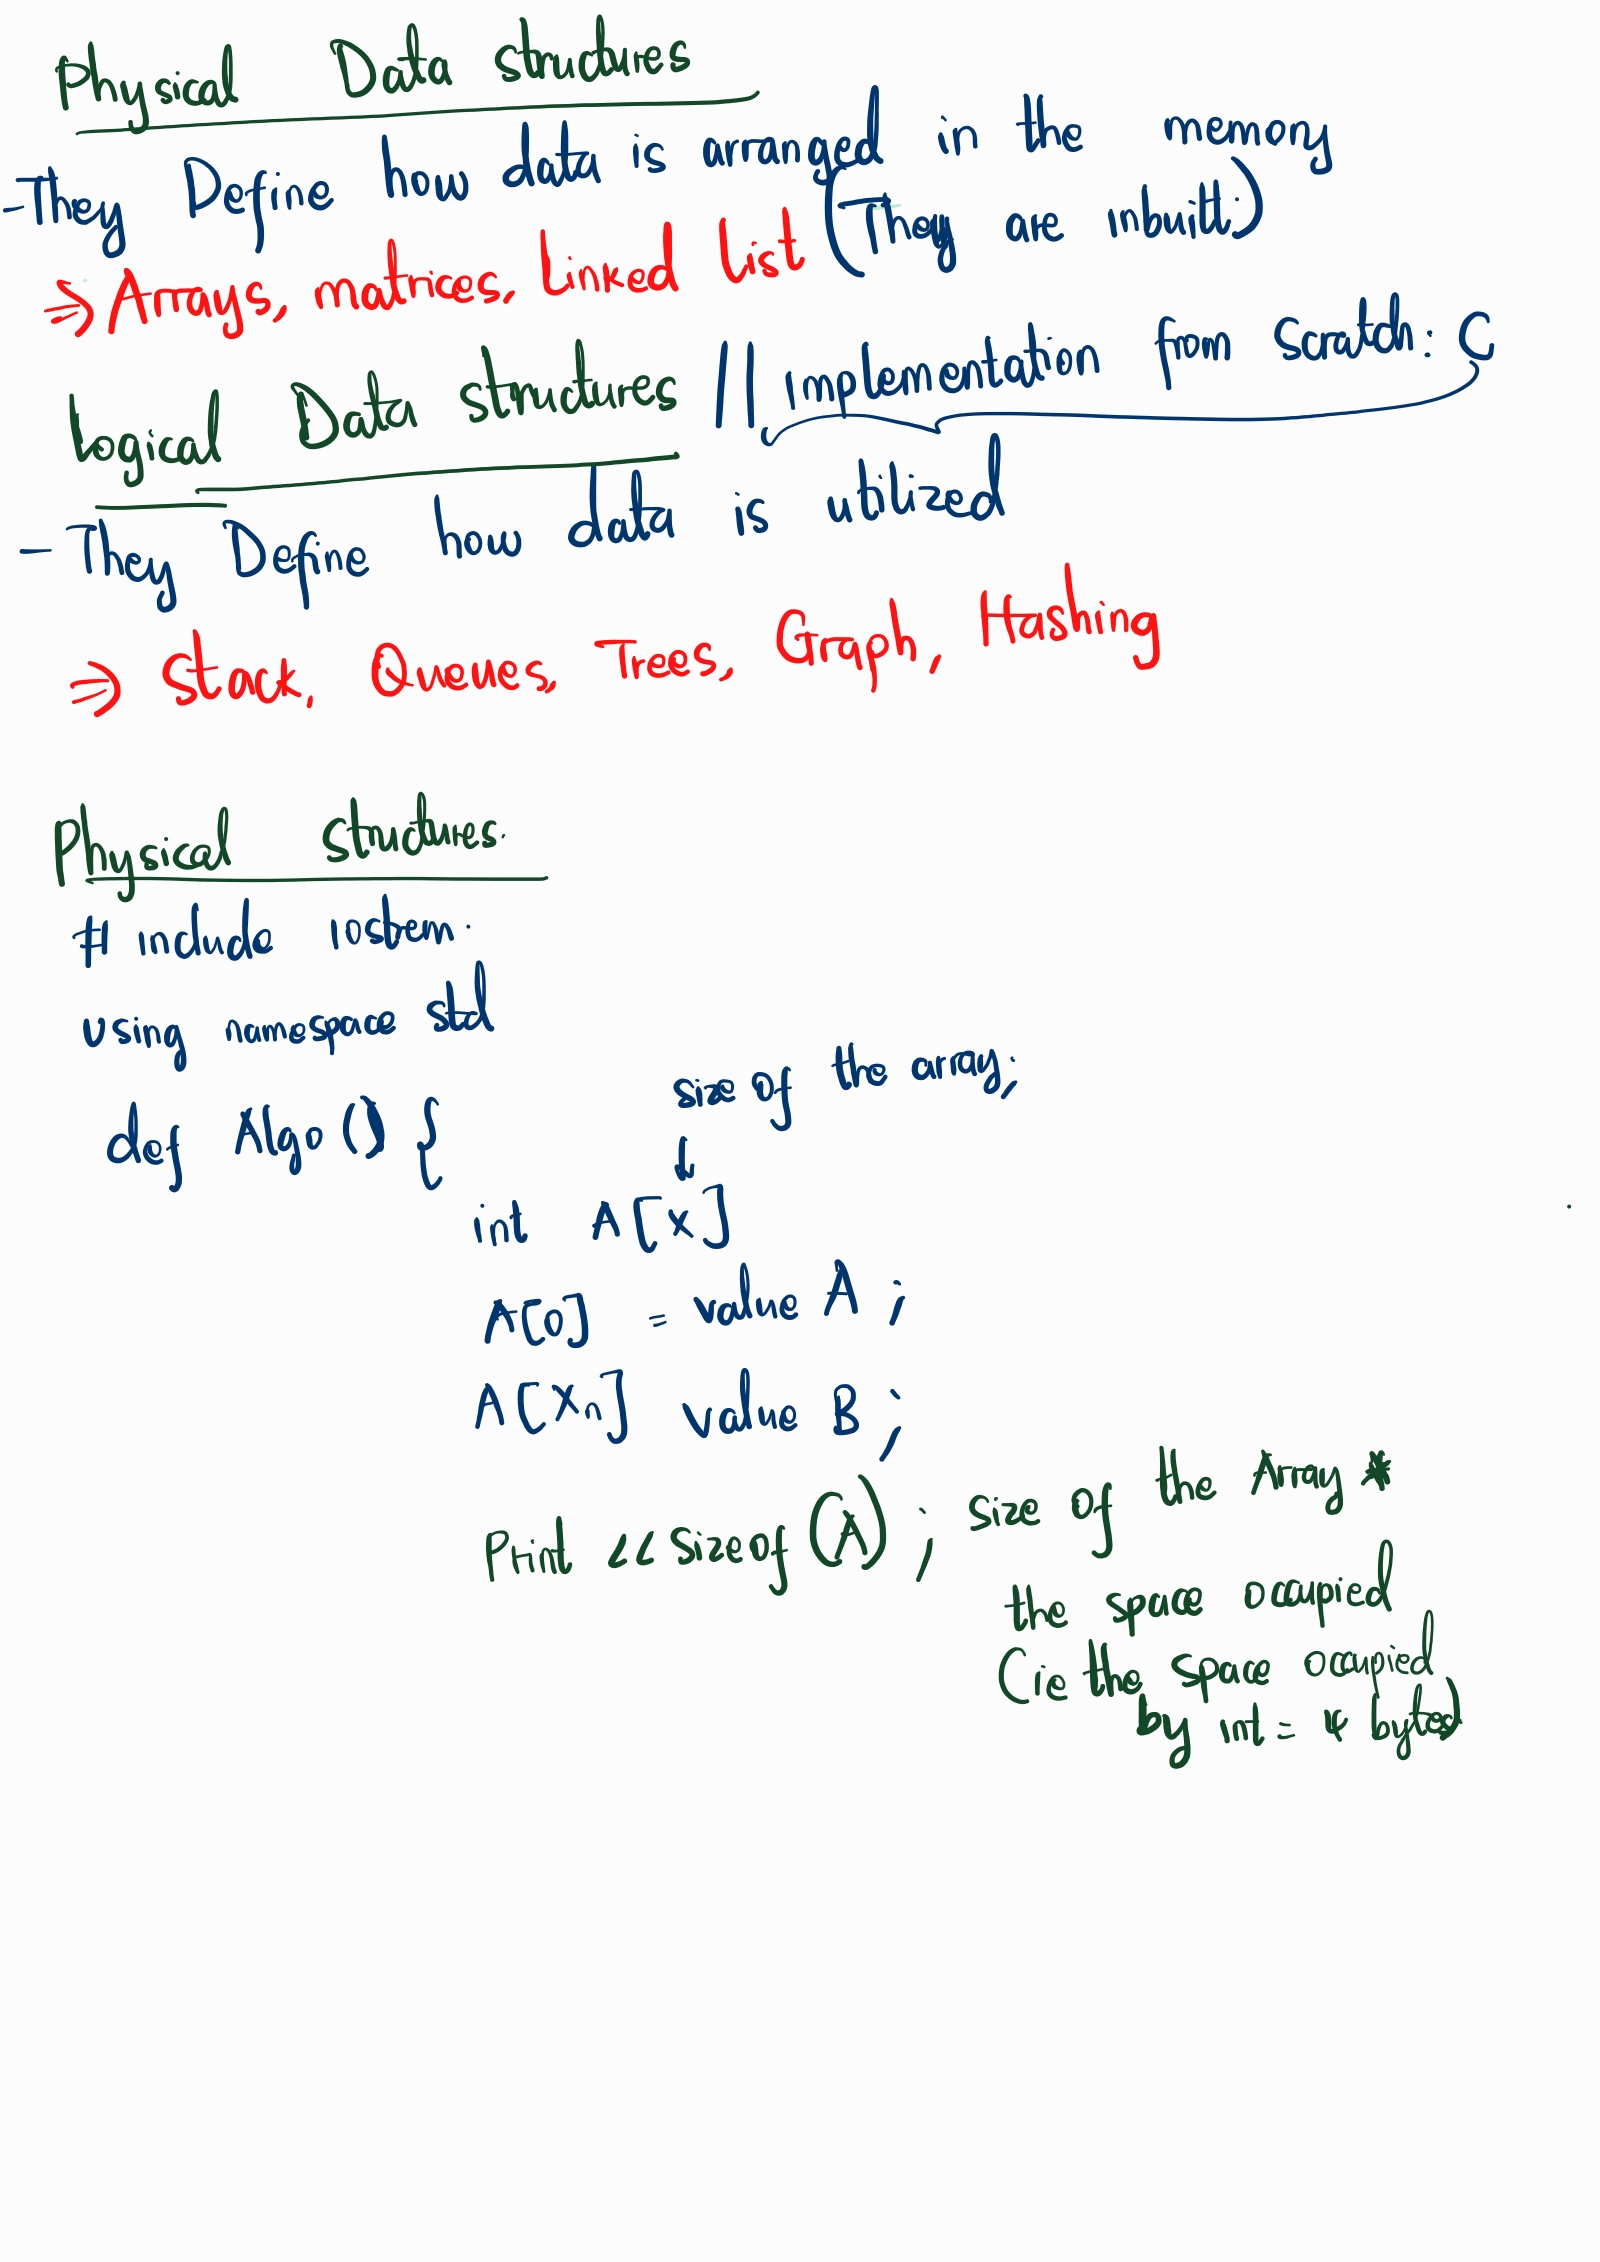 Physical Data structures
-They Define how data is arranged in the memory
⇒ Arrays, matrices, Linked List (They are inbuilt.)
Logical Data structures || Implementation from scratch: C
- They Define how data is utilized
⇒ Stack, Queues, Trees, Graph, Hashing
Physical structures.
# include iostrem.
using namespace std
def Algo () {
size of the array;
↓
int A[x]
A[0] = value A ;
A[Xn] value B ;
Print << sizeof (A) ; size of the Array *
the space occupied
(ie the space occupied
by int = 4 bytes)